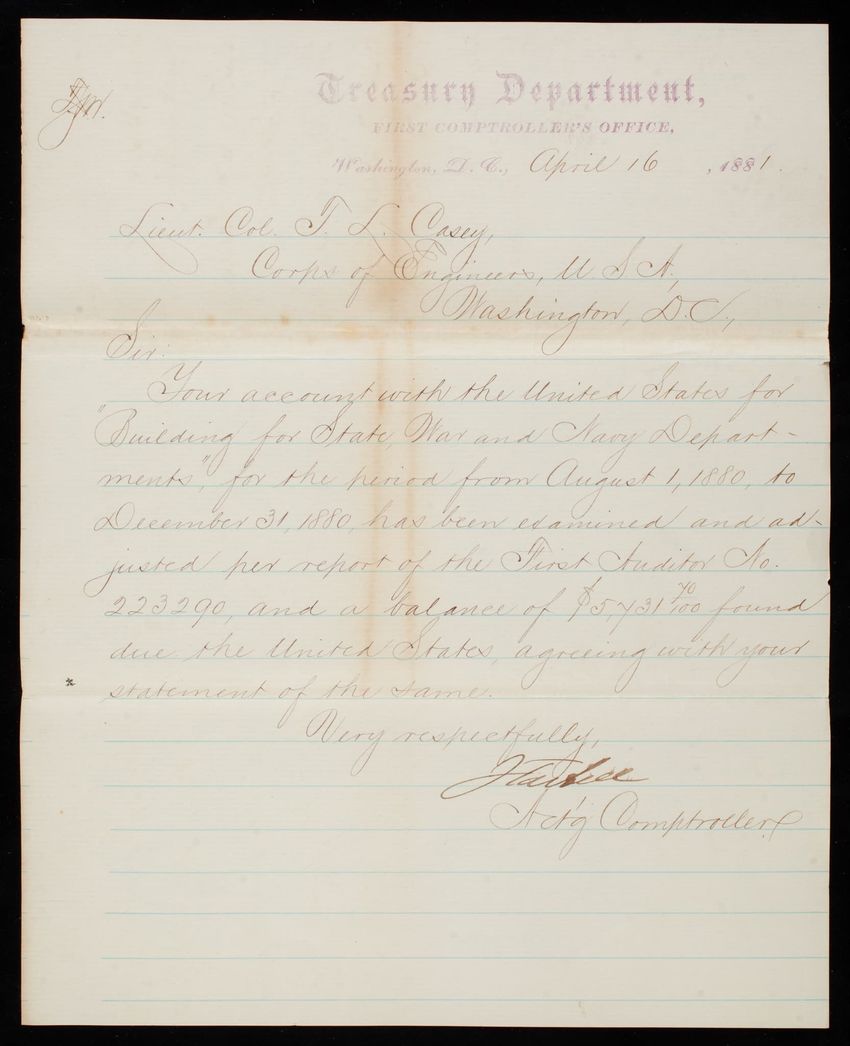 Treasury Department,
FIRST COMPTROLLER'S OFFICE,
Washington, D. C., April 16, 1881.
Lieut. Col. T. L. Casey,
Corps of Engineers, U S A,
Washington, D. C.,
Sir:
Your account with the United States for
"Building for State, War and Navy Depart-
ments", for the period from August 1, 1880, to
December 31, 1880, has been examined and ad-
justed per report of the First Auditor No.
223290, and a balance of $5,731 70/100 found
due the United States, agreeing with your
statement of the same.
Very respectfully,
Act'g Comptroller.